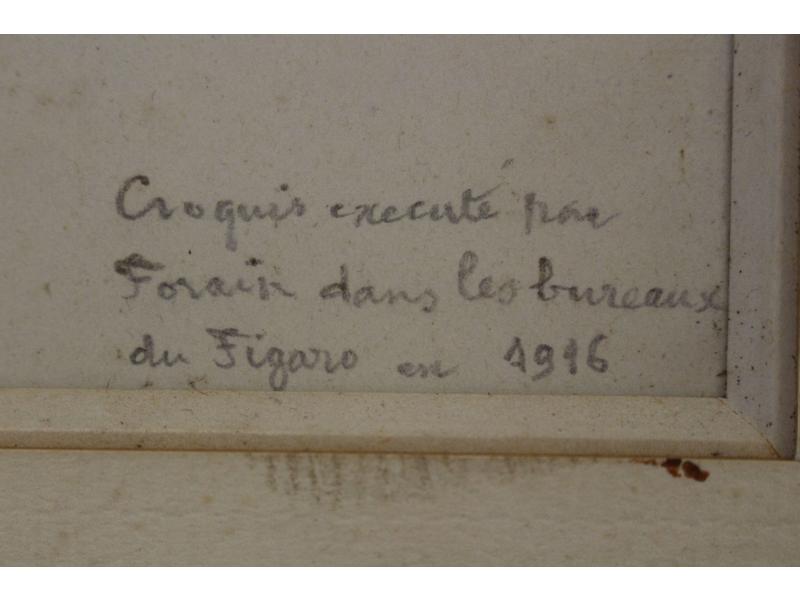 Croquis executé par
Forain dans les bureaux
du Figaro en 1916